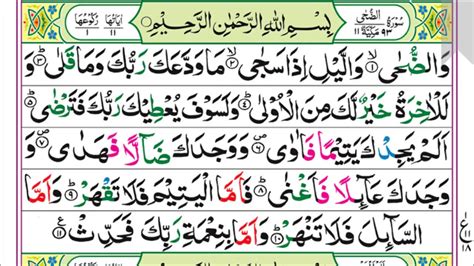 سُوْرَةُ الضُّحٰى ٩٣ مَكِّيَّةٌ ١١
بِسْمِ اللّٰهِ الرَّحْمٰنِ الرَّحِيْمِ
اٰيَاتُهَا ١١ رُكُوْعُهَا ١
وَالضُّحٰى ۙ‏﴿۱﴾ وَالَّيْلِ اِذَا سَجٰى ۙ‏﴿۲﴾ مَا وَدَّعَكَ رَبُّكَ وَمَا قَلٰى ؕ‏﴿۳﴾ وَ
لَلْاٰخِرَةُ خَيْرٌ لَّكَ مِنَ الْاُوْلٰى ؕ‏﴿۴﴾ وَلَسَوْفَ يُعْطِيْكَ رَبُّكَ فَتَرْضٰى ؕ‏﴿۵﴾
اَلَمْ يَجِدْكَ يَتِيْمًا فَاٰوٰى ۪‏﴿۶﴾ وَوَجَدَكَ ضَآلًّا فَهَدٰى ۪‏﴿۷﴾ وَ
وَجَدَكَ عَآئِلًا فَاَغْنٰى ؕ‏﴿۸﴾ فَاَمَّا الْيَتِيْمَ فَلَا تَقْهَرْ ؕ‏﴿۹﴾ وَاَمَّا
السَّآئِلَ فَلَا تَنْهَرْ ؕ‏﴿۱۰﴾ وَاَمَّا بِنِعْمَةِ رَبِّكَ فَحَدِّثْ ﴿۱۱﴾
ع
١١
١٨